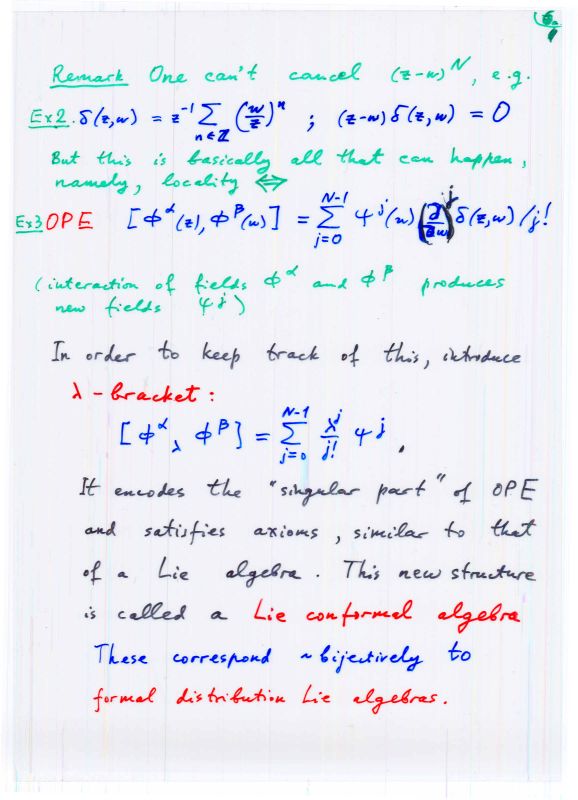 Remark One can't cancel (z-w)^N, e.g.
Ex2. δ(z,w) = z^{-1} Σ_{n∈ℤ} (w/z)^n ; (z-w) δ(z,w) = 0
But this is basically all that can happen,
namely, locality ⇔
Ex3 OPE [Φ^α(z), Φ^β(w)] = Σ_{j=0}^{N-1} Ψ^j(w) (∂/∂w)^j δ(z,w)/j!
(interaction of fields Φ^α and Φ^β produces
new fields Ψ^j)
In order to keep track of this, introduce
λ-bracket:
[Φ^α_λ Φ^β] = Σ_{j=0}^{N-1} λ^j/j! Ψ^j.
It encodes the "singular part" of OPE
and satisfies axioms, similar to that
of a Lie algebra. This new structure
is called a Lie conformal algebra
These correspond ~bijectively to
formal distribution Lie algebras.